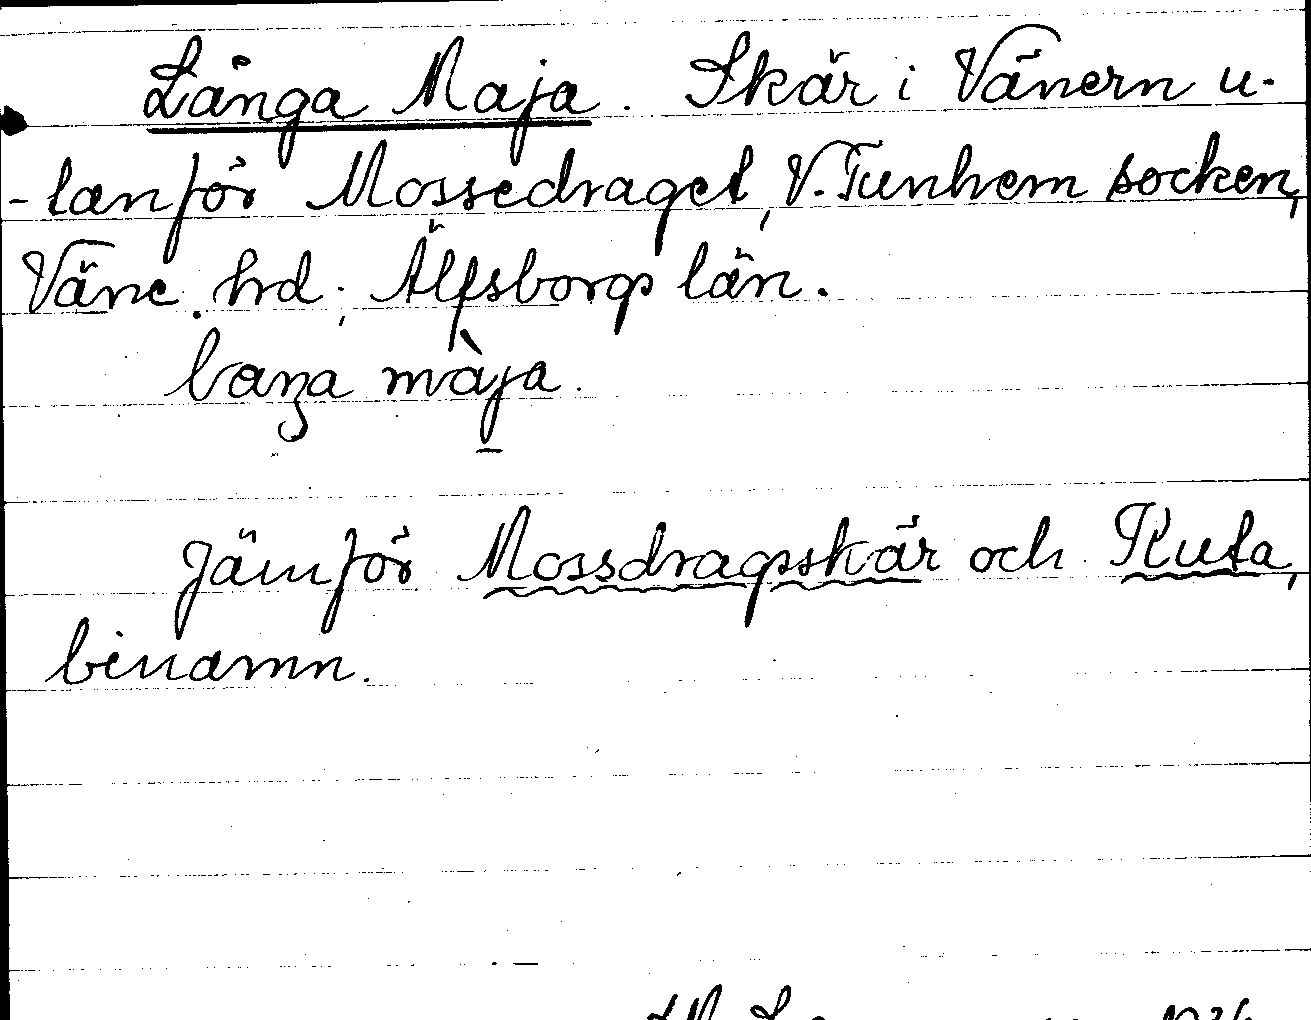 Långa Maja. Skär i Vänern u-
-tanför Mossedraget, V. Tunhem socken,
Väne hd, Älfsborgs län.
laŋa màja.
Jämför Mossdragsskär och Kuta,
binamn.